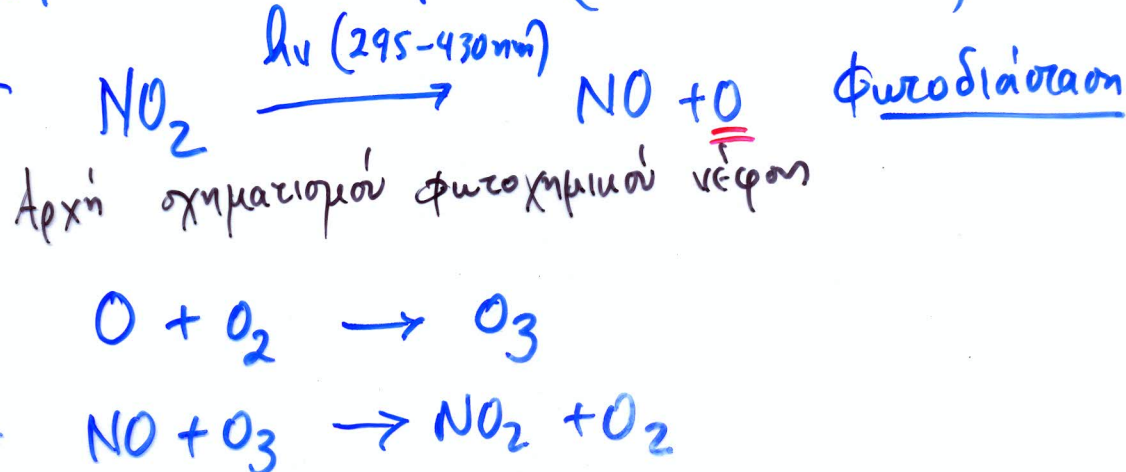 hν (295-430nm)
NO₂ → NO + O Φωτοδιάσταση
Αρχή σχηματισμού φωτοχημικού νέφους
O + O₂ → O₃
NO + O₃ → NO₂ + O₂